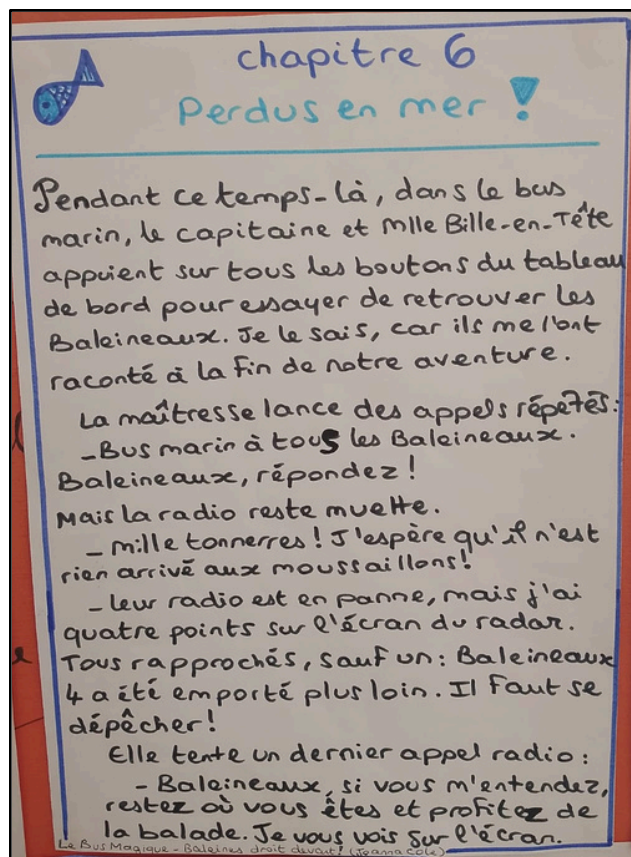 chapitre 6
Perdus en mer !
Pendant ce temps-là, dans le bus
marin, le capitaine et Mlle Bille-en-Tête
appuient sur tous les boutons du tableau
de bord pour essayer de retrouver les
Baleineaux. Je le sais, car ils me l'ont
raconté à la fin de notre aventure.
La maîtresse lance des appels répétés :
- Bus marin à tous les Baleineaux.
Baleineaux, répondez !
Mais la radio reste muette.
- Mille tonnerres ! J'espère qu'il n'est
rien arrivé aux moussaillons !
- Leur radio est en panne, mais j'ai
quatre points sur l'écran du radar.
Tous rapprochés, sauf un : Baleineaux
4 a été emporté plus loin. Il faut se
dépêcher !
Elle tente un dernier appel radio :
- Baleineaux, si vous m'entendez,
restez où vous êtes et profitez de
la balade. Je vous vois sur l'écran.
Le Bus Magique - Baleines droit devant ! (Joanna Cole)